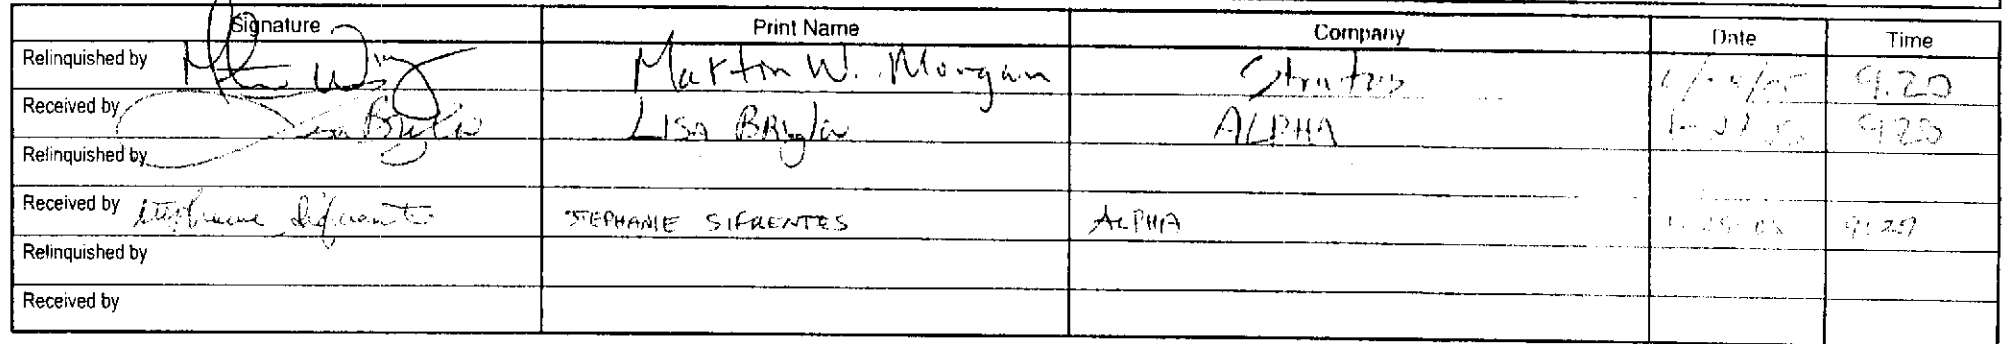 Signature Print Name Company Date Time
Relinquished by Martin W. Morgan Stratus 9:20
Received by Lisa BRyla ALPHA 9:20
Relinquished by
Received by STEPHANIE SIFRENTES ALPHA 9:29
Relinquished by
Received by